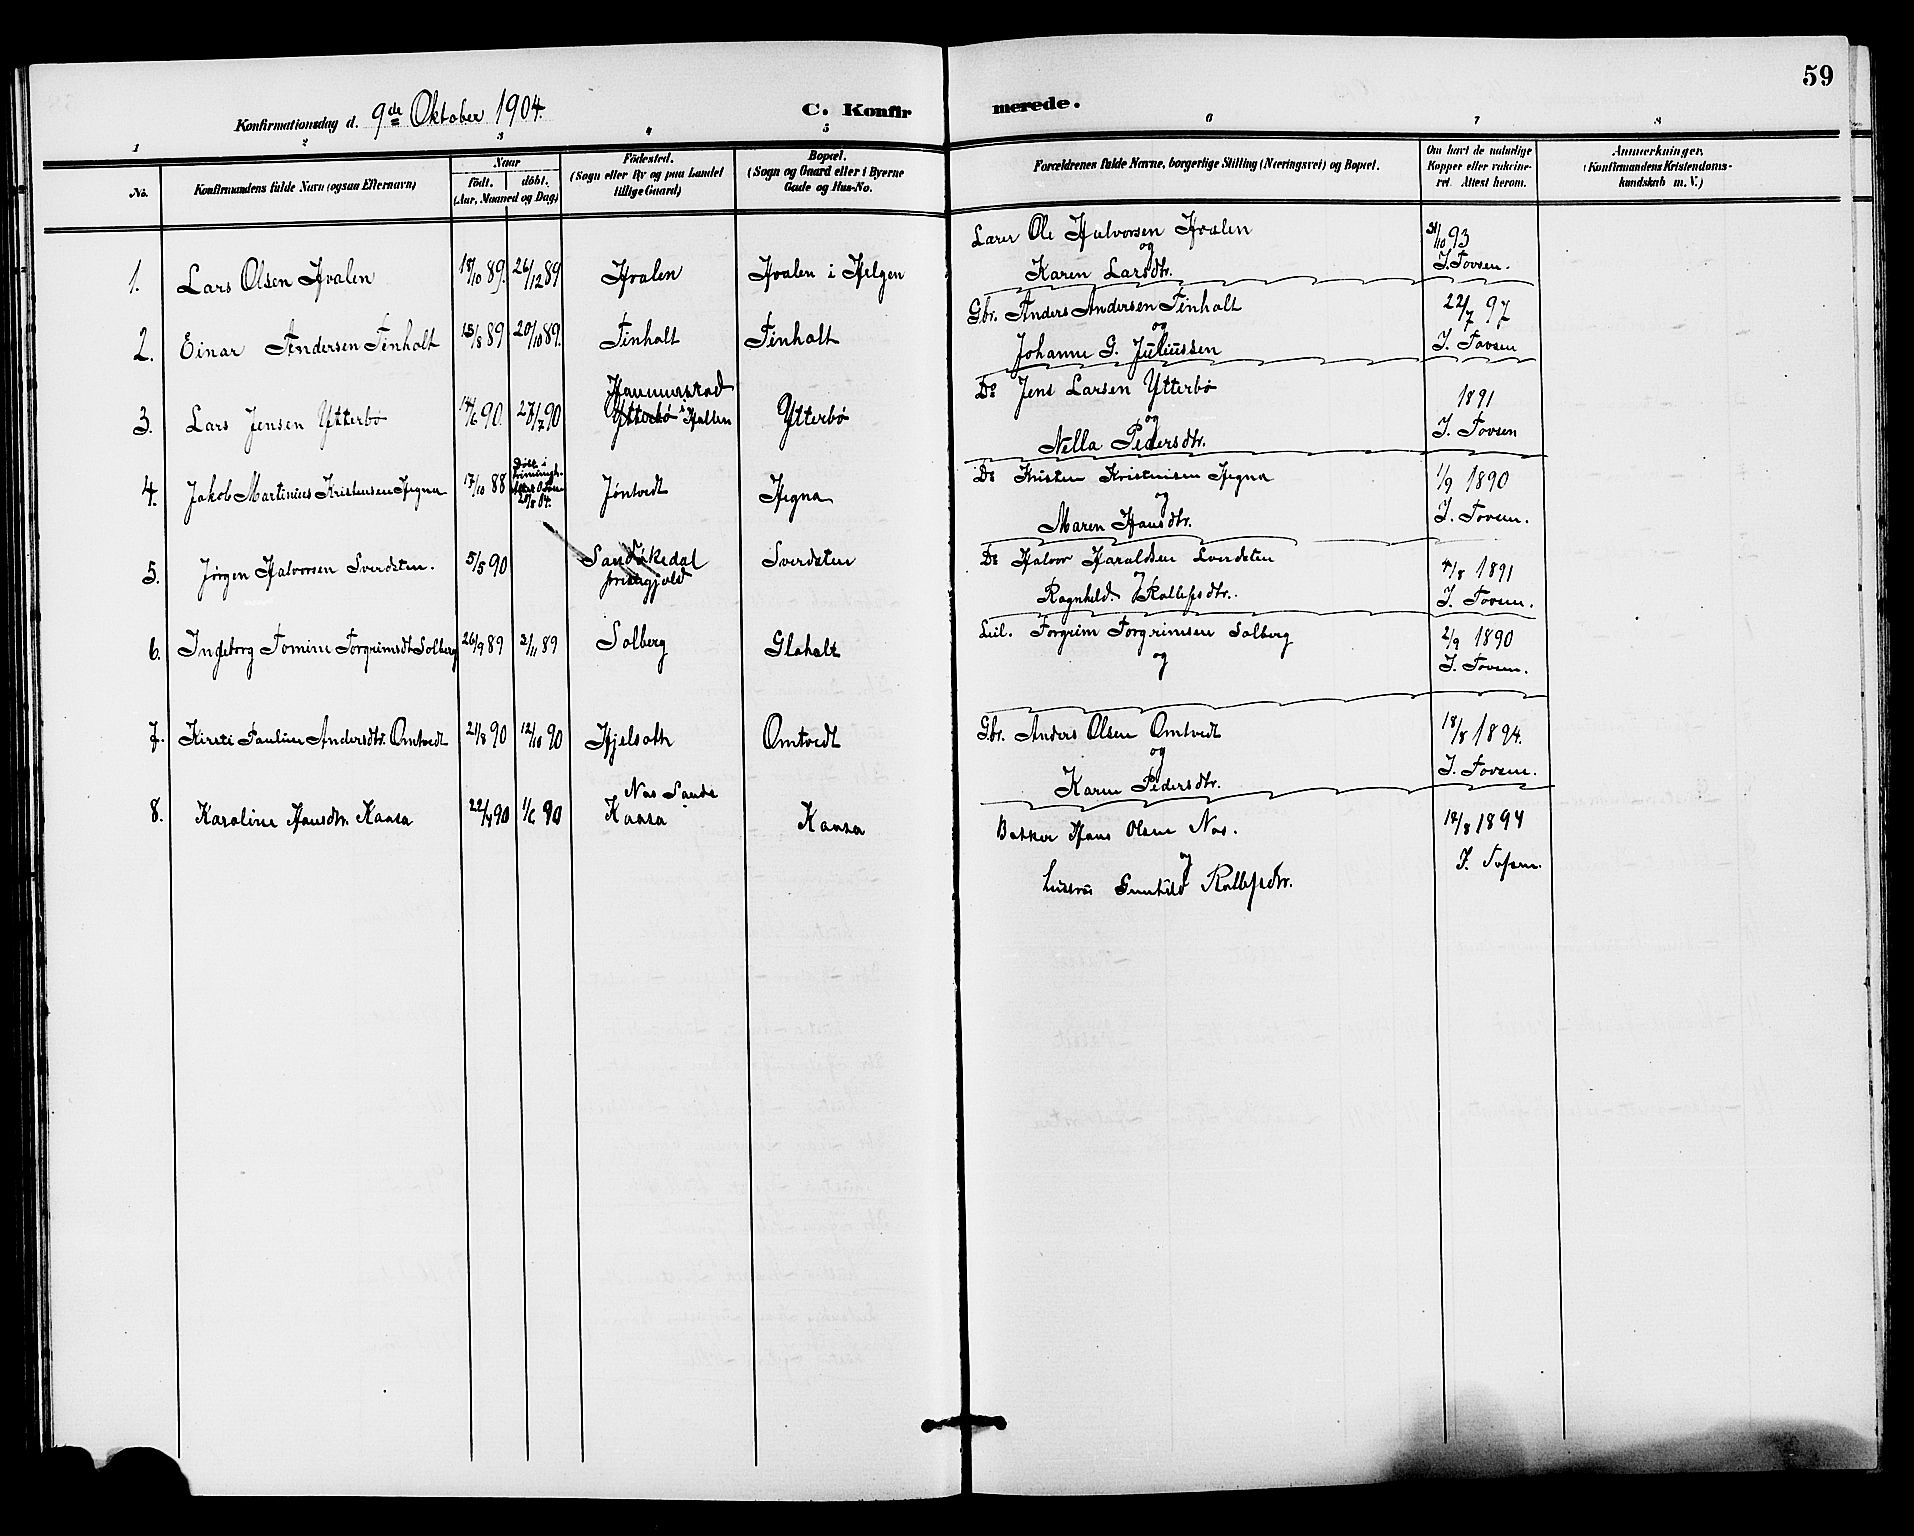 59
Konfirmationsdag d. 9de Oktober 1904.
C. Konfirmerede.
1 2 3 4 5 6 7 8
No.
Konfirmandens fulde Navn (ogsaa Efternavn)
Naar
født. døbt.
(Aar, Maaned og Dag)
Fødested.
(Sogn eller By og paa Landet
tillige Gaard)
Bopæl.
(Sogn og Gaard eller i Byerne
Gade og Hus-No.
Forældrenes fulde Navne, borgerlige Stilling (Næringsvei) og Bopæl.
Om havt de naturlige
Kopper eller vakcine-
ret. Attest herom.
Anmærkninger,
(Konfirmandens Kristendoms-
kundskab m. V.)
1. Lars Olsen Hvalen 18/10 89. 26/12 89 Hvalen Hvalen i Helgen
Lærer Ole Halvorsen Hvalen
og
Karen Larsdtr.
31/10 93
J. Tovsen.
2. Einar Andersen Finholt 15/8 89 20/10 89. Finholt Finholt
Gbr. Anders Andersen Finholt
og
Johanne G. Juliussen
22/7 97
J. Tovsen
3. Lars Jensen Ytterbø 14/6 90. 27/7 90
Hammerstad
Ytterbø i Hollen
Ytterbø
Do Jens Larsen Ytterbø
og
Nella Pedersdtr.
1891
J. Tovsen
4. Jakob Martinius Kristensen Hegna 17/10 88
Døbt i
20/8 04.
Jøntvedt Hegna
Do Kristen Kristensen Hegna
og
Maren Hansdtr.
1/9 1890
J. Tovsen.
5. Jørgen Halvorsen Sverdsten. 5/5 90
Sandøkedal
Sverdsten
Do Halvor Haraldsen Sverdsten
og
Ragnhild Rollefsdtr.
4/8 1891
J. Tovsen.
6. Ingeborg Tomine Torgrimsdt Solberg 26/9 89 2/11 89 Solberg Glaholt
Leil. Torgrim Torgrimsen Solberg
og
2/9 1890
J. Tovsen.
7. Kirsti Pauline Andersdtr. Omtvedt 21/8 90 12/10 90 Hjelseth Omtvedt
Gbr. Anders Olsen Omtvedt
og
Karen Pedersdtr.
18/8 1894.
J. Tovsen.
8. Karoline Hansdtr. Kaasa 22/4 90 1/6 90
Nes Sande
Kaasa
Kaasa
Bakker Hans Olsen Nes.
og
hustru Gunhild Rollefsdtr.
18/8 1894
J. Tofsen.